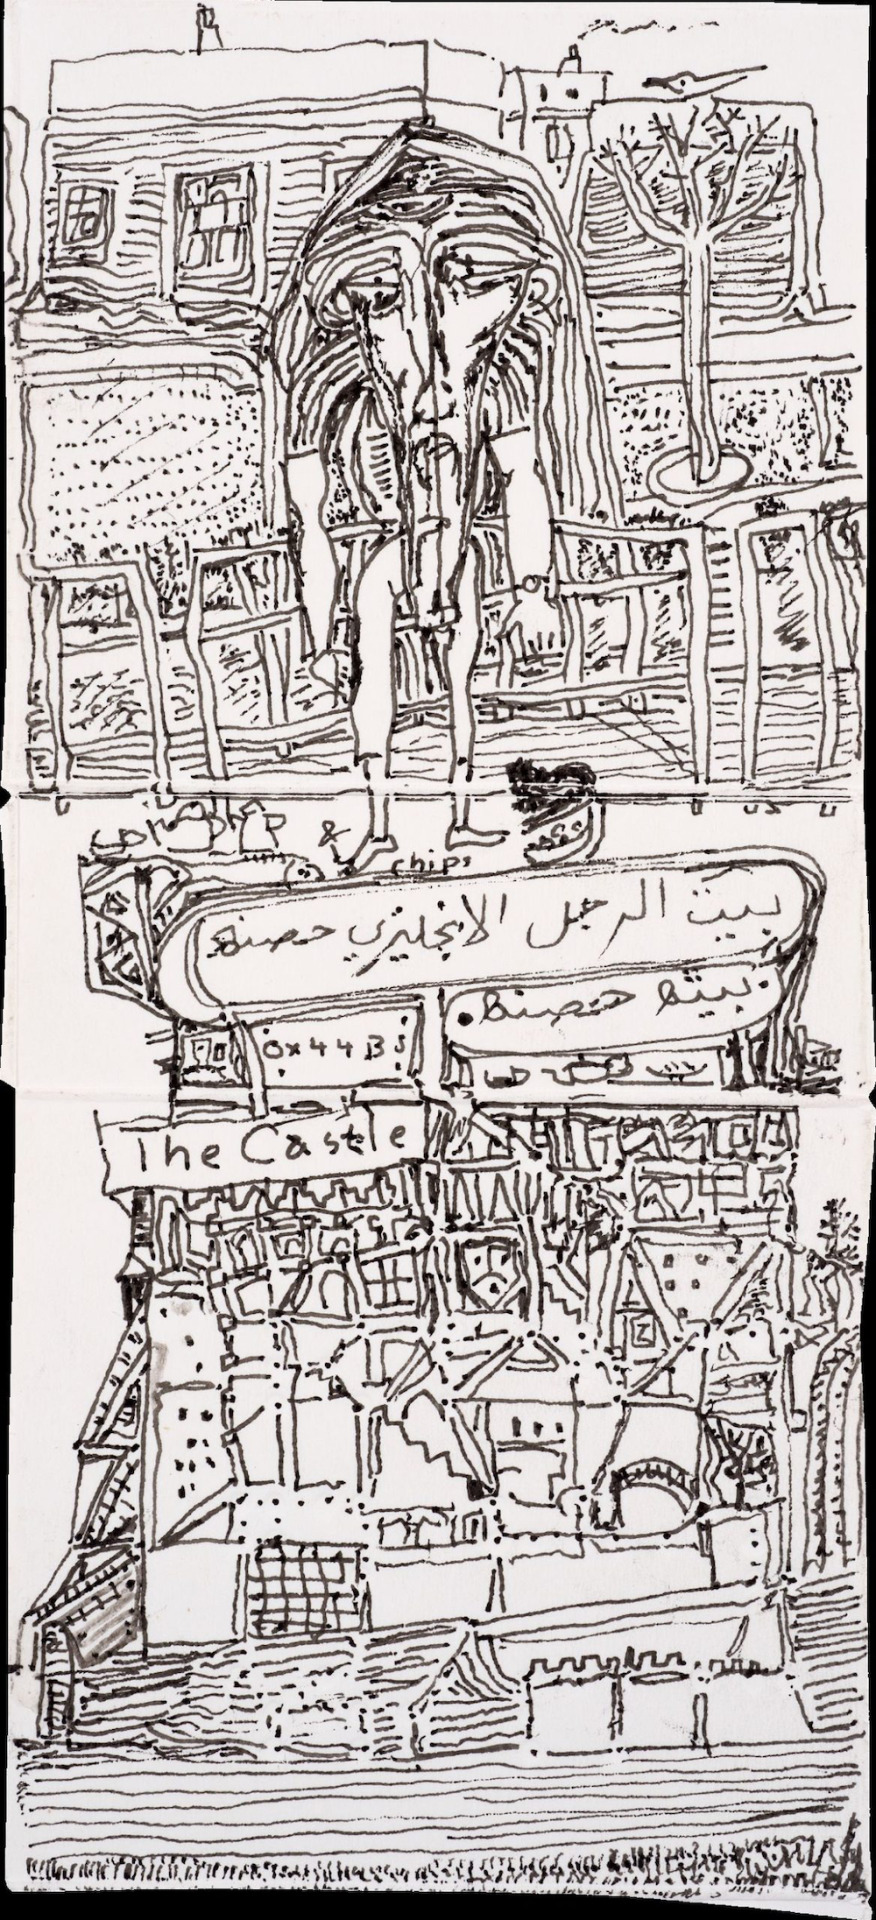 & chips
بيت الرجل الانجليزي حصنه
بيته حصنه
0x44B5
The Castle